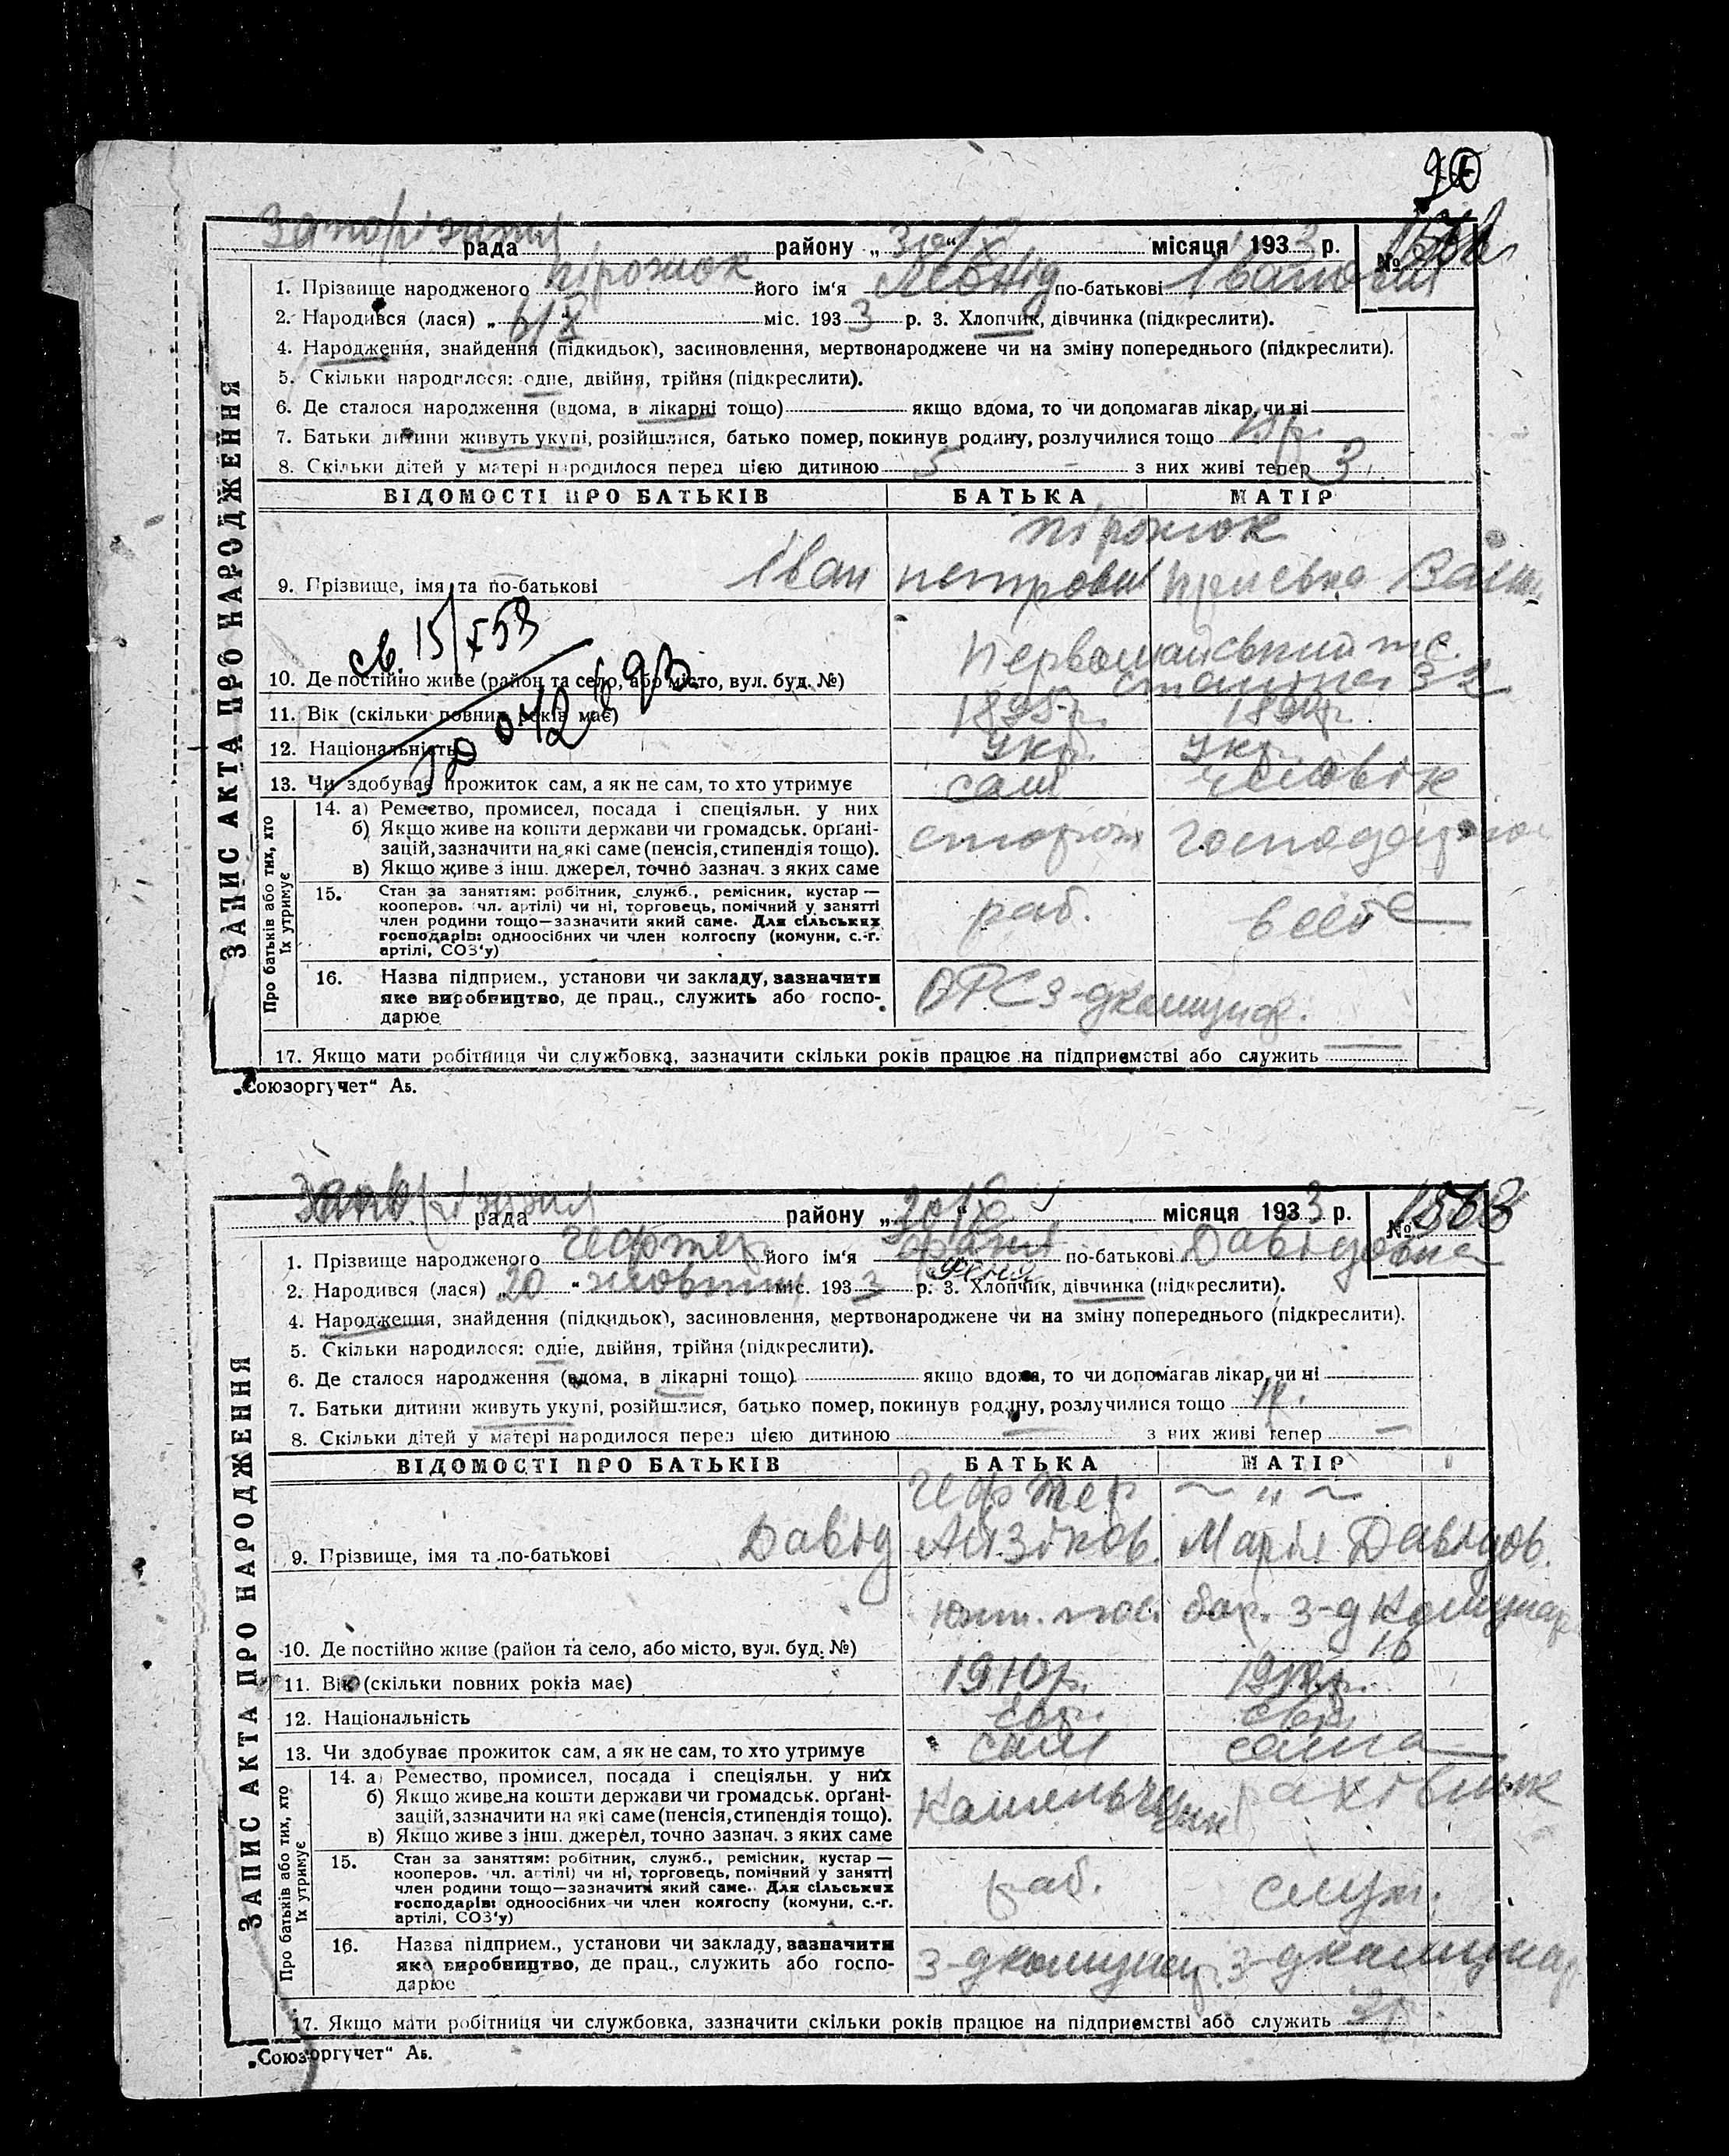 Запоріжжя рада району „30/X“ місяця 1933 р. №
1. Прізвище народженого Пірожок його ім‘я Леонід по-батькові Іванович
2. Народився (лася) „6/X“ міс. 1933 р. 3. Хлопчик, дівчинка (підкреслити).
4. Народження, знайдення (підкидьок), засиновлення, мертвонароджене чи на зміну попереднього (підкреслити).
5. Скільки народилося: одне, двійня, трійня (підкреслити).
6. Де сталося народження (вдома, в лікарні тощо) якщо вдома, то чи допомагав лікар, чи ні
7. Батьки дитини живуть укупі, розійшлися, батько помер, покинув родину, розлучилися тощо
8. Скільки дітей у матері народилося перед цією дитиною 5 з них живі тепер 3
ЗАПИС АКТА ПРО НАРОДЖЕННЯ
ВІДОМОСТІ ПРО БАТЬКІВ БАТЬКА МАТІР
Пірожок
9. Прізвище, імя та по-батькові Іван Петрович
св. 15/X 53
Первомайський
10. Де постійно живе (район та село, або місто, вул. буд. №) 32
11. Вік (скільки повних років має) 1895р.
12. Національність укр. укр.
13. Чи здобуває прожиток сам, а як не сам, то хто утримує сам чоловік
Про батьків або тих, хто їх утримує
14. а) Ремество, промисел, посада і спеціяльн. у них
б) Якщо живе на кошти держави чи громадськ. орґані-
зацій, зазначити на які саме (пенсія, стипендія тощо). сторож
в) Якщо живе з інш. джерел, точно зазнач. з яких саме
15. Стан за заняттям: робітник, служб., ремісник, кустар —
кооперов. чл. артілі) чи ні, торговець, помічний у занятті
член родини тощо—зазначити який саме. Для сільських раб.
господарів: одноосібних чи член колгоспу (комуни, с.-г.
артілі, СОЗ‘у)
16. Назва підприєм., установи чи закладу, зазначити
яке виробництво, де прац., служить або госпо- ОРС з-д комунар.
дарює
17. Якщо мати робітниця чи службовка, зазначити скільки років працює на підприємстві або служить
„Союзоргучет“ Аб.
Запоріжжя рада району „30/X“ місяця 1933 р. № 1563
1. Прізвище народженого Гефтер його ім‘я Фаня по-батькові Давідовна
Феня
2. Народився (лася) „20“ жовтня міс. 1933 р. 3. Хлопчик, дівчинка (підкреслити).
4. Народження, знайдення (підкидьок), засиновлення, мертвонароджене чи на зміну попереднього (підкреслити).
5. Скільки народилося: одне, двійня, трійня (підкреслити).
6. Де сталося народження (вдома, в лікарні тощо) якщо вдома, то чи допомагав лікар, чи ні
7. Батьки дитини живуть укупі, розійшлися, батько помер, покинув родину, розлучилися тощо
8. Скільки дітей у матері народилося перед цією дитиною — з них живі тепер —
ЗАПИС АКТА ПРО НАРОДЖЕННЯ
ВІДОМОСТІ ПРО БАТЬКІВ БАТЬКА МАТІР
Гефтер ~ „ ~
9. Прізвище, імя та по-батькові Давід Айзіков. Марія Давідов.
бар. з-д Комунар
10. Де постійно живе (район та село, або місто, вул. буд. №) 16
11. Вік (скільки повних років має) 1910р.
12. Національність євр. євр.
13. Чи здобуває прожиток сам, а як не сам, то хто утримує сам сама
Про батьків або тих, хто їх утримує
14. а) Ремество, промисел, посада і спеціяльн. у них
б) Якщо живе на кошти держави чи громадськ. орґані-
зацій, зазначити на які саме (пенсія, стипендія тощо). рахівник
в) Якщо живе з інш. джерел, точно зазнач. з яких саме
15. Стан за заняттям: робітник, служб., ремісник, кустар —
кооперов. чл. артілі) чи ні, торговець, помічний у занятті
член родини тощо—зазначити який саме. Для сільських раб. служ.
господарів: одноосібних чи член колгоспу (комуни, с.-г.
артілі, СОЗ‘у)
16. Назва підприєм., установи чи закладу, зазначити
яке виробництво, де прац., служить або госпо- з-д комунар. з-д комунар
дарює
17. Якщо мати робітниця чи службовка, зазначити скільки років працює на підприємстві або служить 2р.
„Союзоргучет“ Аб.